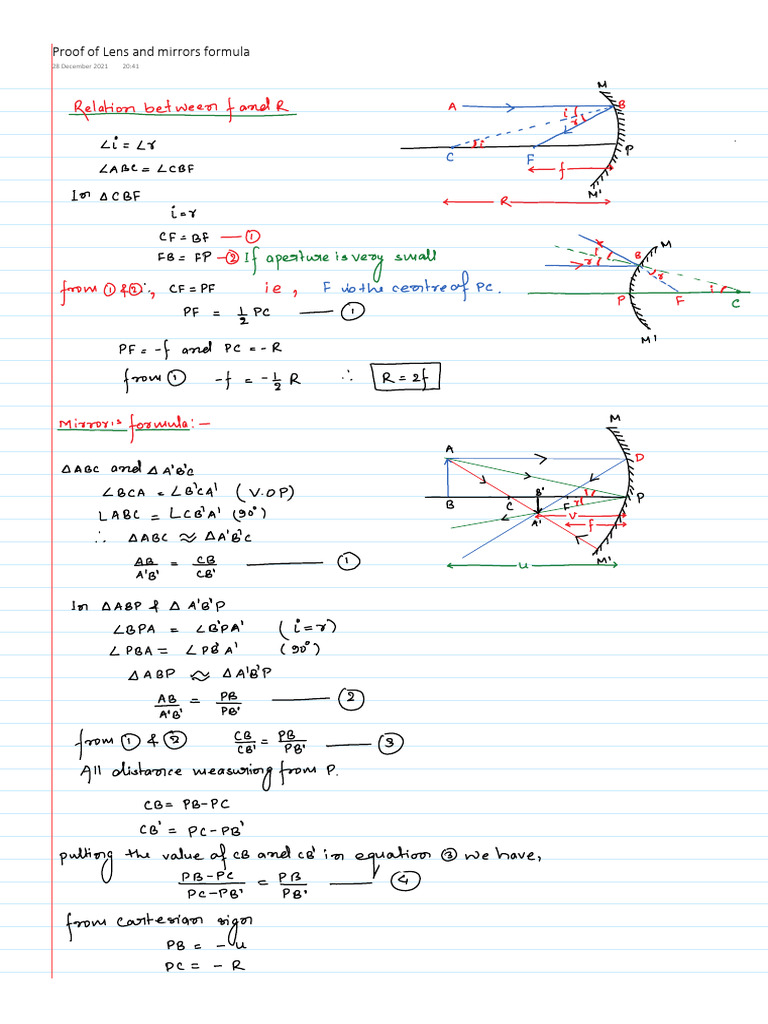 Proof of Lens and mirrors formula
28 December 2021 20:41
Relation between f and R
∠i = ∠r
∠ABC = ∠CBF
In △CBF
i = r
CF = BF — ①
FB = FP — ② If aperture is very small
from ① & ②∴, CF = PF ie, F is the centre of PC.
PF = 1/2 PC — ①
PF = -f and PC = -R
from ① -f = -1/2 R ∴ R = 2f
M
A
B
i
r
C
i
F
P
f
M'
R
M
B
i
r
r
P
F
i
C
M'
Mirror's formula:-
△ABC and △A'B'C
∠BCA = ∠B'CA' (V.O.P)
∠ABC = ∠CB'A' (90°)
∴ △ABC ≈ △A'B'C
AB/A'B' = CB/CB' — ①
M
A
D
B
C
B'
F
i
r
P
A'
v
f
M'
u
In △ABP & △A'B'P
∠BPA = ∠B'PA' (i=r)
∠PBA = ∠PB'A' (90°)
△ABP ≈ △A'B'P
AB/A'B' = PB/PB' — ②
from ① & ② CB/CB' = PB/PB' — ③
All distance measuring from P.
CB = PB-PC
CB' = PC-PB'
putting the value of CB and CB' in equation ③ we have,
PB-PC/PC-PB' = PB/PB' — ④
from cartesian sign
PB = -u
PC = -R